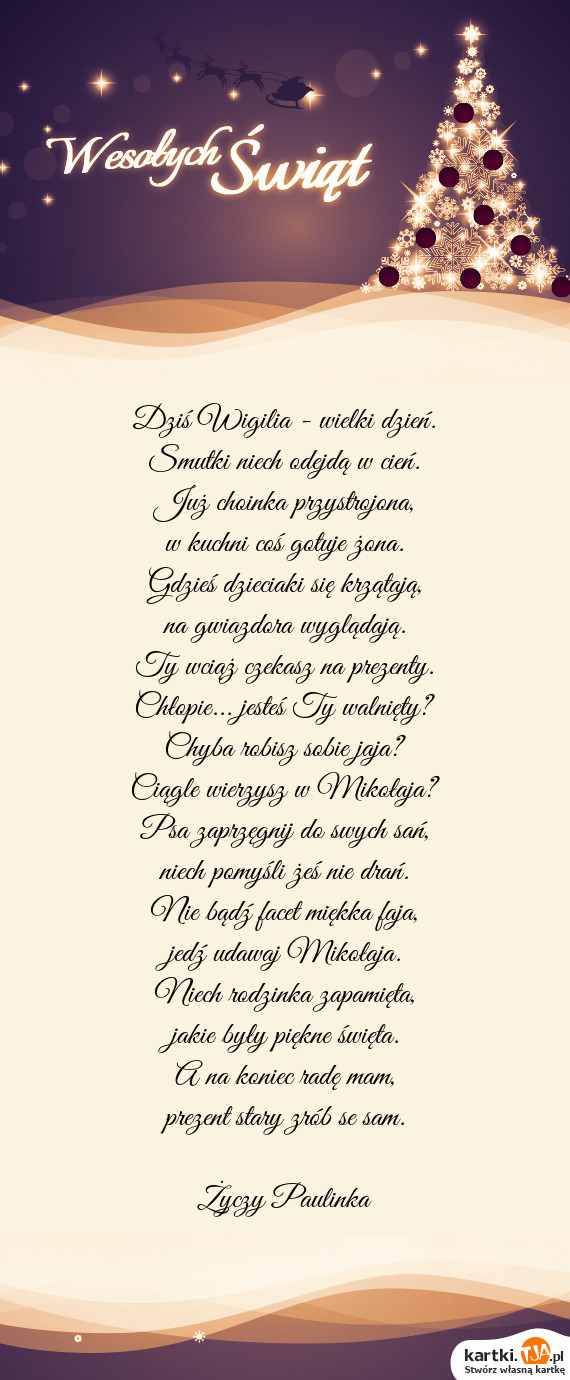 Wesołych Świąt
Dziś Wigilia - wielki dzień.
Smutki niech odejdą w cień.
Już choinka przystrojona,
w kuchni coś gotuje żona.
Gdzieś dzieciaki się krzątają,
na gwiazdora wyglądają.
Ty wciąż czekasz na prezenty.
Chłopie... jesteś Ty walnięty?
Chyba robisz sobie jaja?
Ciągle wierzysz w Mikołaja?
Psa zaprzęgnij do swych sań,
niech pomyśli żeś nie drań.
Nie bądź facet miękka faja,
jedź udawaj Mikołaja.
Niech rodzinka zapamięta,
jakie były piękne święta.
A na koniec radę mam,
prezent stary zrób se sam.
Życzy Paulinka
kartki.TJA.pl
Stwórz własną kartkę